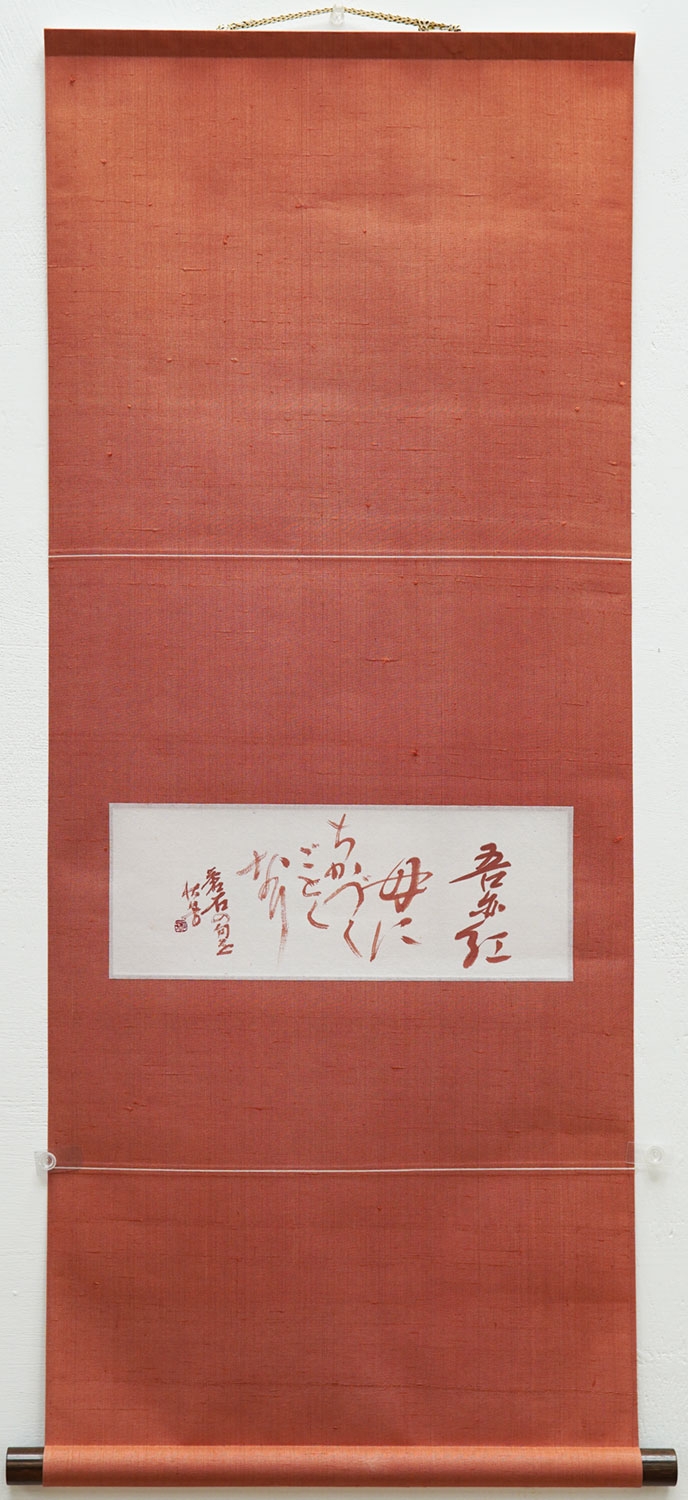 吾亦紅
母に
ちかづく
ごとく
なり
蒼石の句を